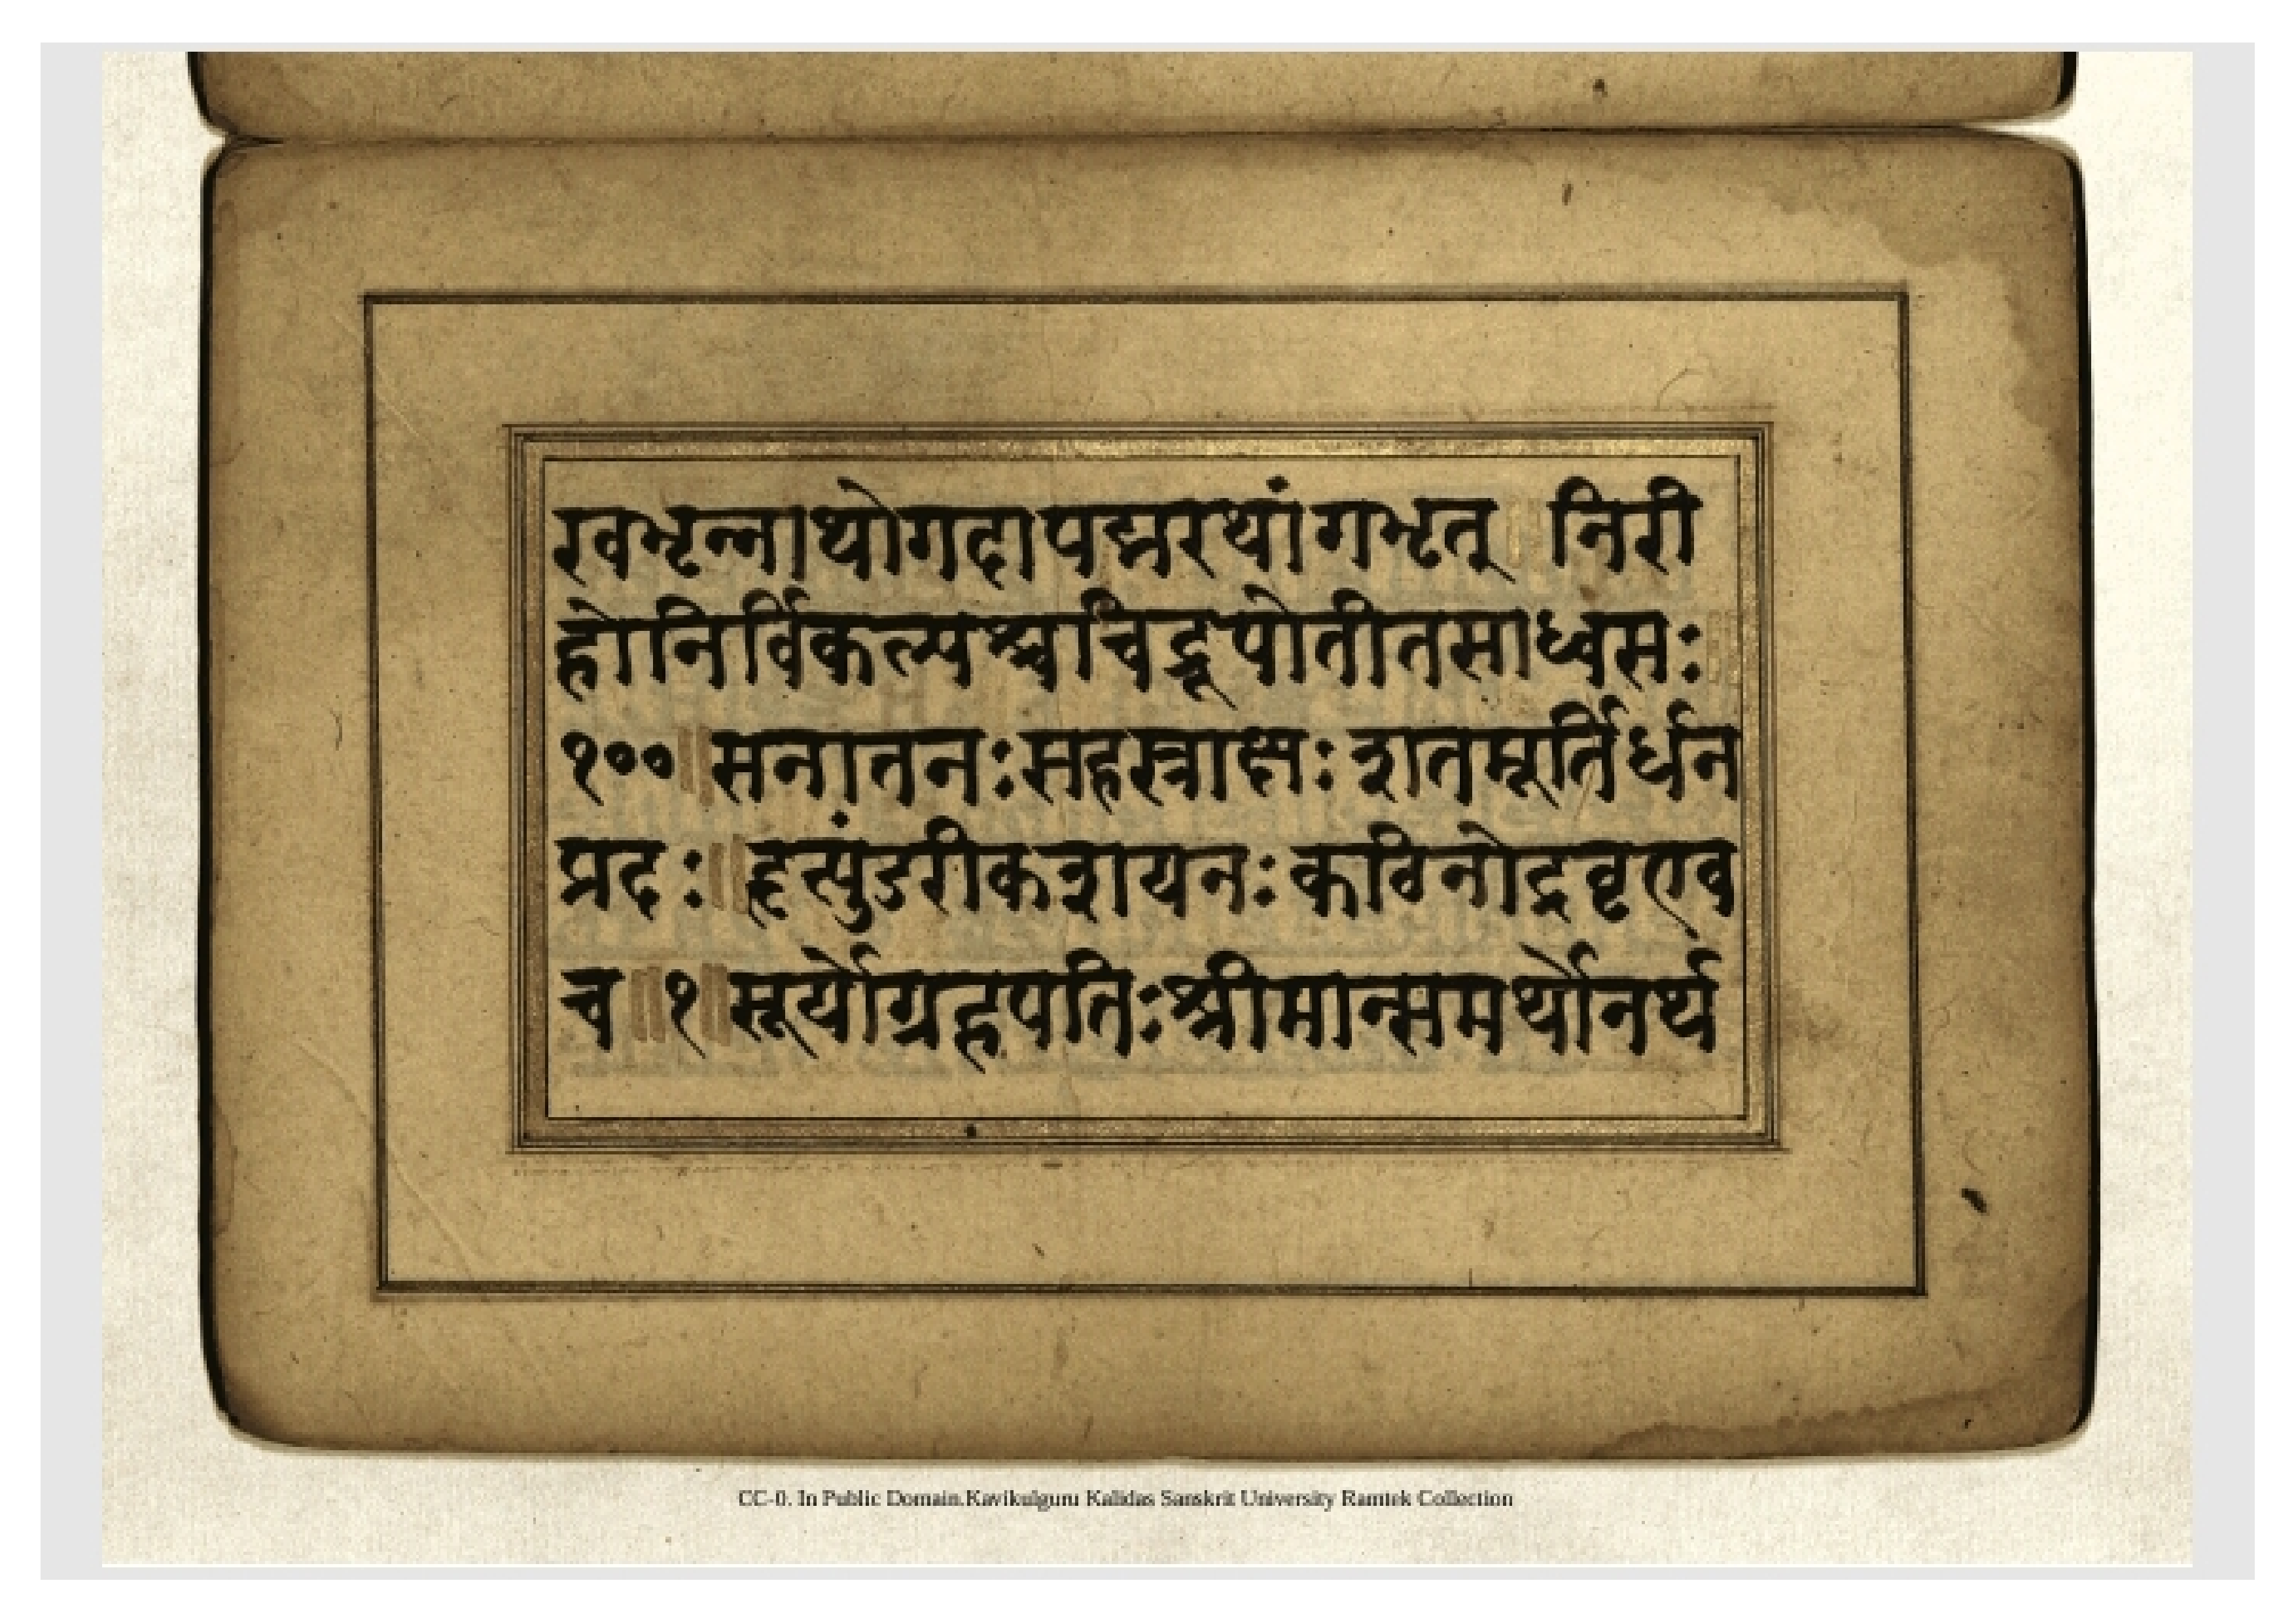 रवभृन्नाथोगदापद्मरथांगभृत् ॥ निरी
होनिर्विकल्पश्चचिद्रूपोतीतसाध्वसः ॥
१०० ॥ सनातनःसहस्राक्षः शतमूर्तिर्धन
प्रदः ॥ हृत्पुंडरीकशयनः कठिनोद्रवएव
च ॥ १ ॥ सूर्योग्रहपतिःश्रीमान्समर्थोनर्थ
CC-0. In Public Domain.Kavikulguru Kalidas Sanskrit University Ramtek Collection